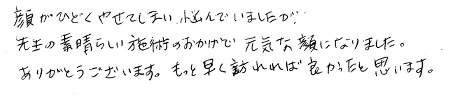 顔がひどくやせてしまい、悩んでいましたが、
先生の素晴らしい施術のおかげで元気な顔になりました。
ありがとうございます。もっと早く訪れれば良かったと思います。